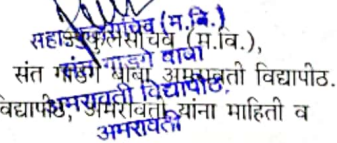 सहा.कुलसचिव (म.वि.),
संत गाडगे बाबा अमरावती विद्यापीठ.
विद्यापीठ, अमरावती यांना माहिती व
सहा.कुलसचिव (म.वि.)
संत गाडगे बाबा
अमरावती विद्यापीठ,
अमरावती